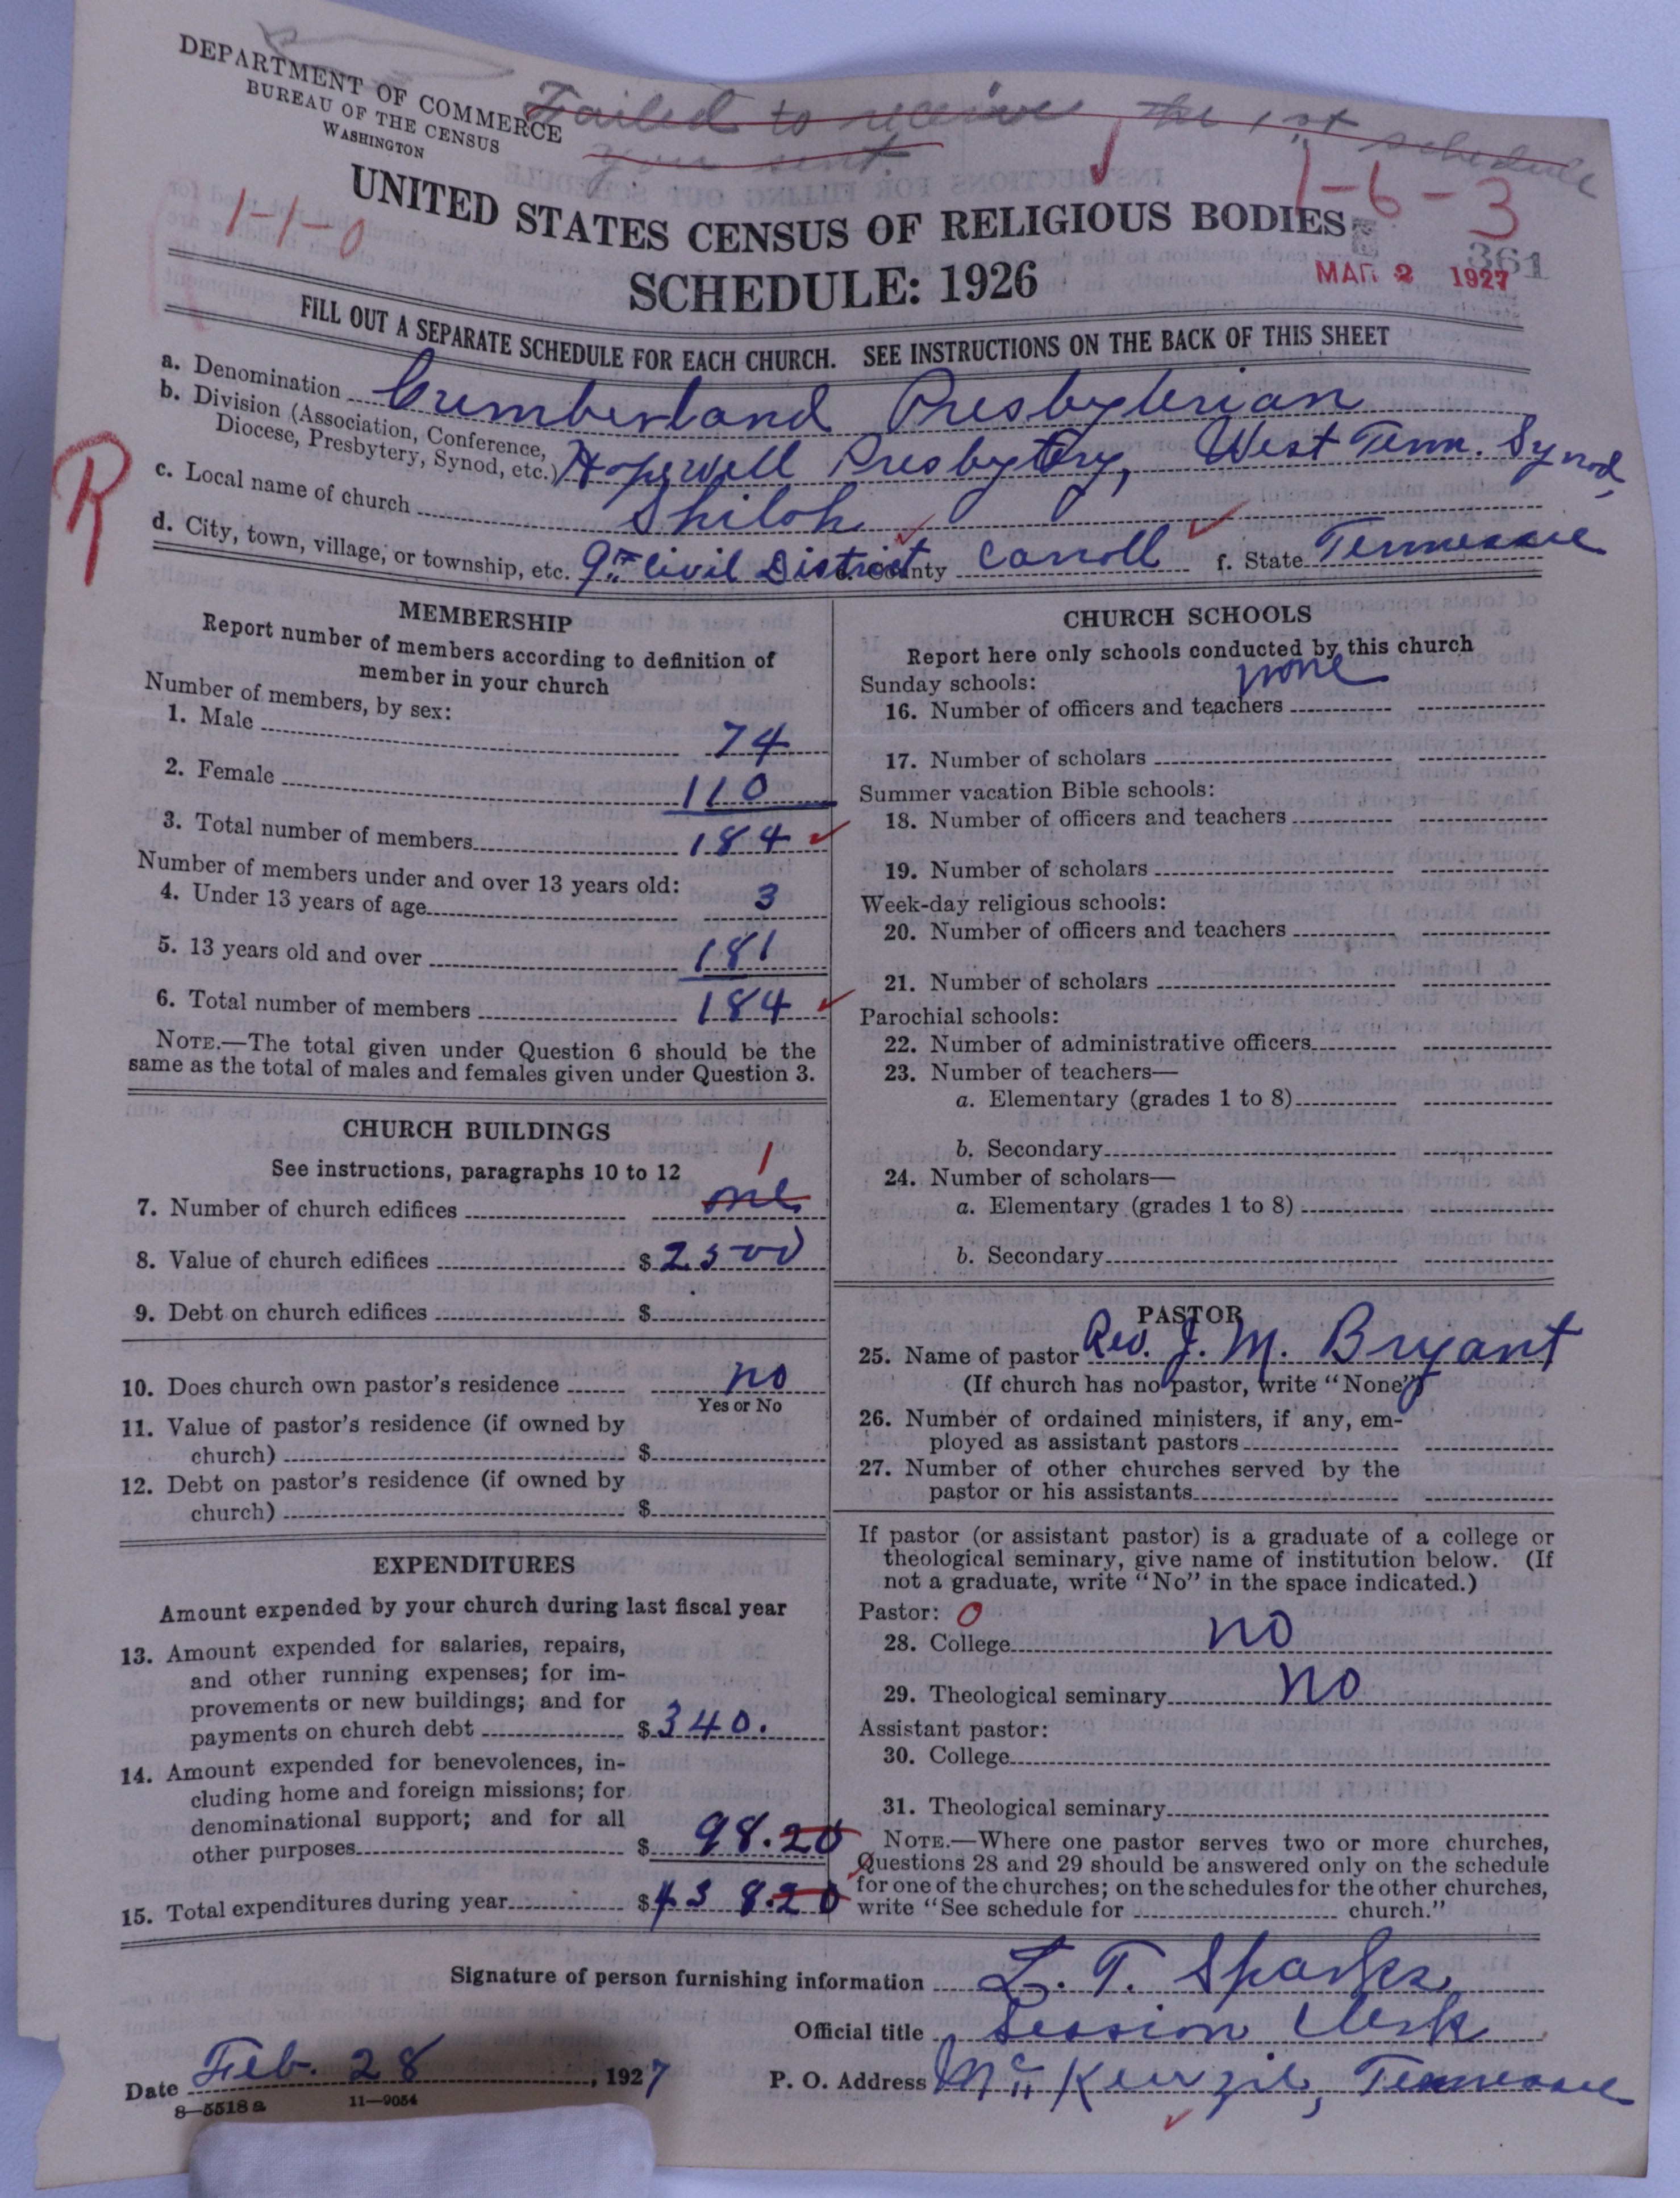 DEPARTMENT OF COMMERCE
BUREAU OF THE CENSUS
WASHINGTON
Failed to receive the 1st schedule
you sent.
1-1-0
1-6-3
UNITED STATES CENSUS OF RELIGIOUS BODIES
361
SCHEDULE: 1926
MAR 2 1927
FILL OUT A SEPARATE SCHEDULE FOR EACH CHURCH. SEE INSTRUCTIONS ON THE BACK OF THIS SHEET
R
a. Denomination Cumberland Presbyterian
b. Division (Association, Conference,
Diocese, Presbytery, Synod, etc.) Hopewell Presbytery, West Tenn. Synod,
c. Local name of church Shiloh
d. City, town, village, or township, etc. 9th Civil District e. County Carroll f. State Tennessee
MEMBERSHIP
Report number of members according to definition of
member in your church
Number of members, by sex:
1. Male 74
2. Female 110
3. Total number of members 184
Number of members under and over 13 years old:
4. Under 13 years of age 3
5. 13 years old and over 181
6. Total number of members 184
NOTE.—The total given under Question 6 should be the
same as the total of males and females given under Question 3.
CHURCH BUILDINGS
See instructions, paragraphs 10 to 12
1
7. Number of church edifices one
8. Value of church edifices $ 2500
9. Debt on church edifices $
10. Does church own pastor's residence no
Yes or No
11. Value of pastor's residence (if owned by
church) $
12. Debt on pastor's residence (if owned by
church) $
EXPENDITURES
Amount expended by your church during last fiscal year
13. Amount expended for salaries, repairs,
and other running expenses; for im-
provements or new buildings; and for
payments on church debt $ 340.
14. Amount expended for benevolences, in-
cluding home and foreign missions; for
denominational support; and for all
other purposes $ 98.20
15. Total expenditures during year $ 438.20
CHURCH SCHOOLS
Report here only schools conducted by this church
Sunday schools: none
16. Number of officers and teachers
17. Number of scholars
Summer vacation Bible schools:
18. Number of officers and teachers
19. Number of scholars
Week-day religious schools:
20. Number of officers and teachers
21. Number of scholars
Parochial schools:
22. Number of administrative officers
23. Number of teachers—
a. Elementary (grades 1 to 8)
b. Secondary
24. Number of scholars—
a. Elementary (grades 1 to 8)
b. Secondary
PASTOR
25. Name of pastor Rev. J. M. Bryant
(If church has no pastor, write "None")
26. Number of ordained ministers, if any, em-
ployed as assistant pastors
27. Number of other churches served by the
pastor or his assistants
If pastor (or assistant pastor) is a graduate of a college or
theological seminary, give name of institution below. (If
not a graduate, write "No" in the space indicated.)
Pastor: 0
28. College no
29. Theological seminary no
Assistant pastor:
30. College
31. Theological seminary
NOTE.—Where one pastor serves two or more churches,
Questions 28 and 29 should be answered only on the schedule
for one of the churches; on the schedules for the other churches,
write "See schedule for church."
Signature of person furnishing information L. T. Sparks
Official title Session Clerk
Date Feb. 28, 1927 P. O. Address McKenzie, Tennessee
8—5518a 11—9054